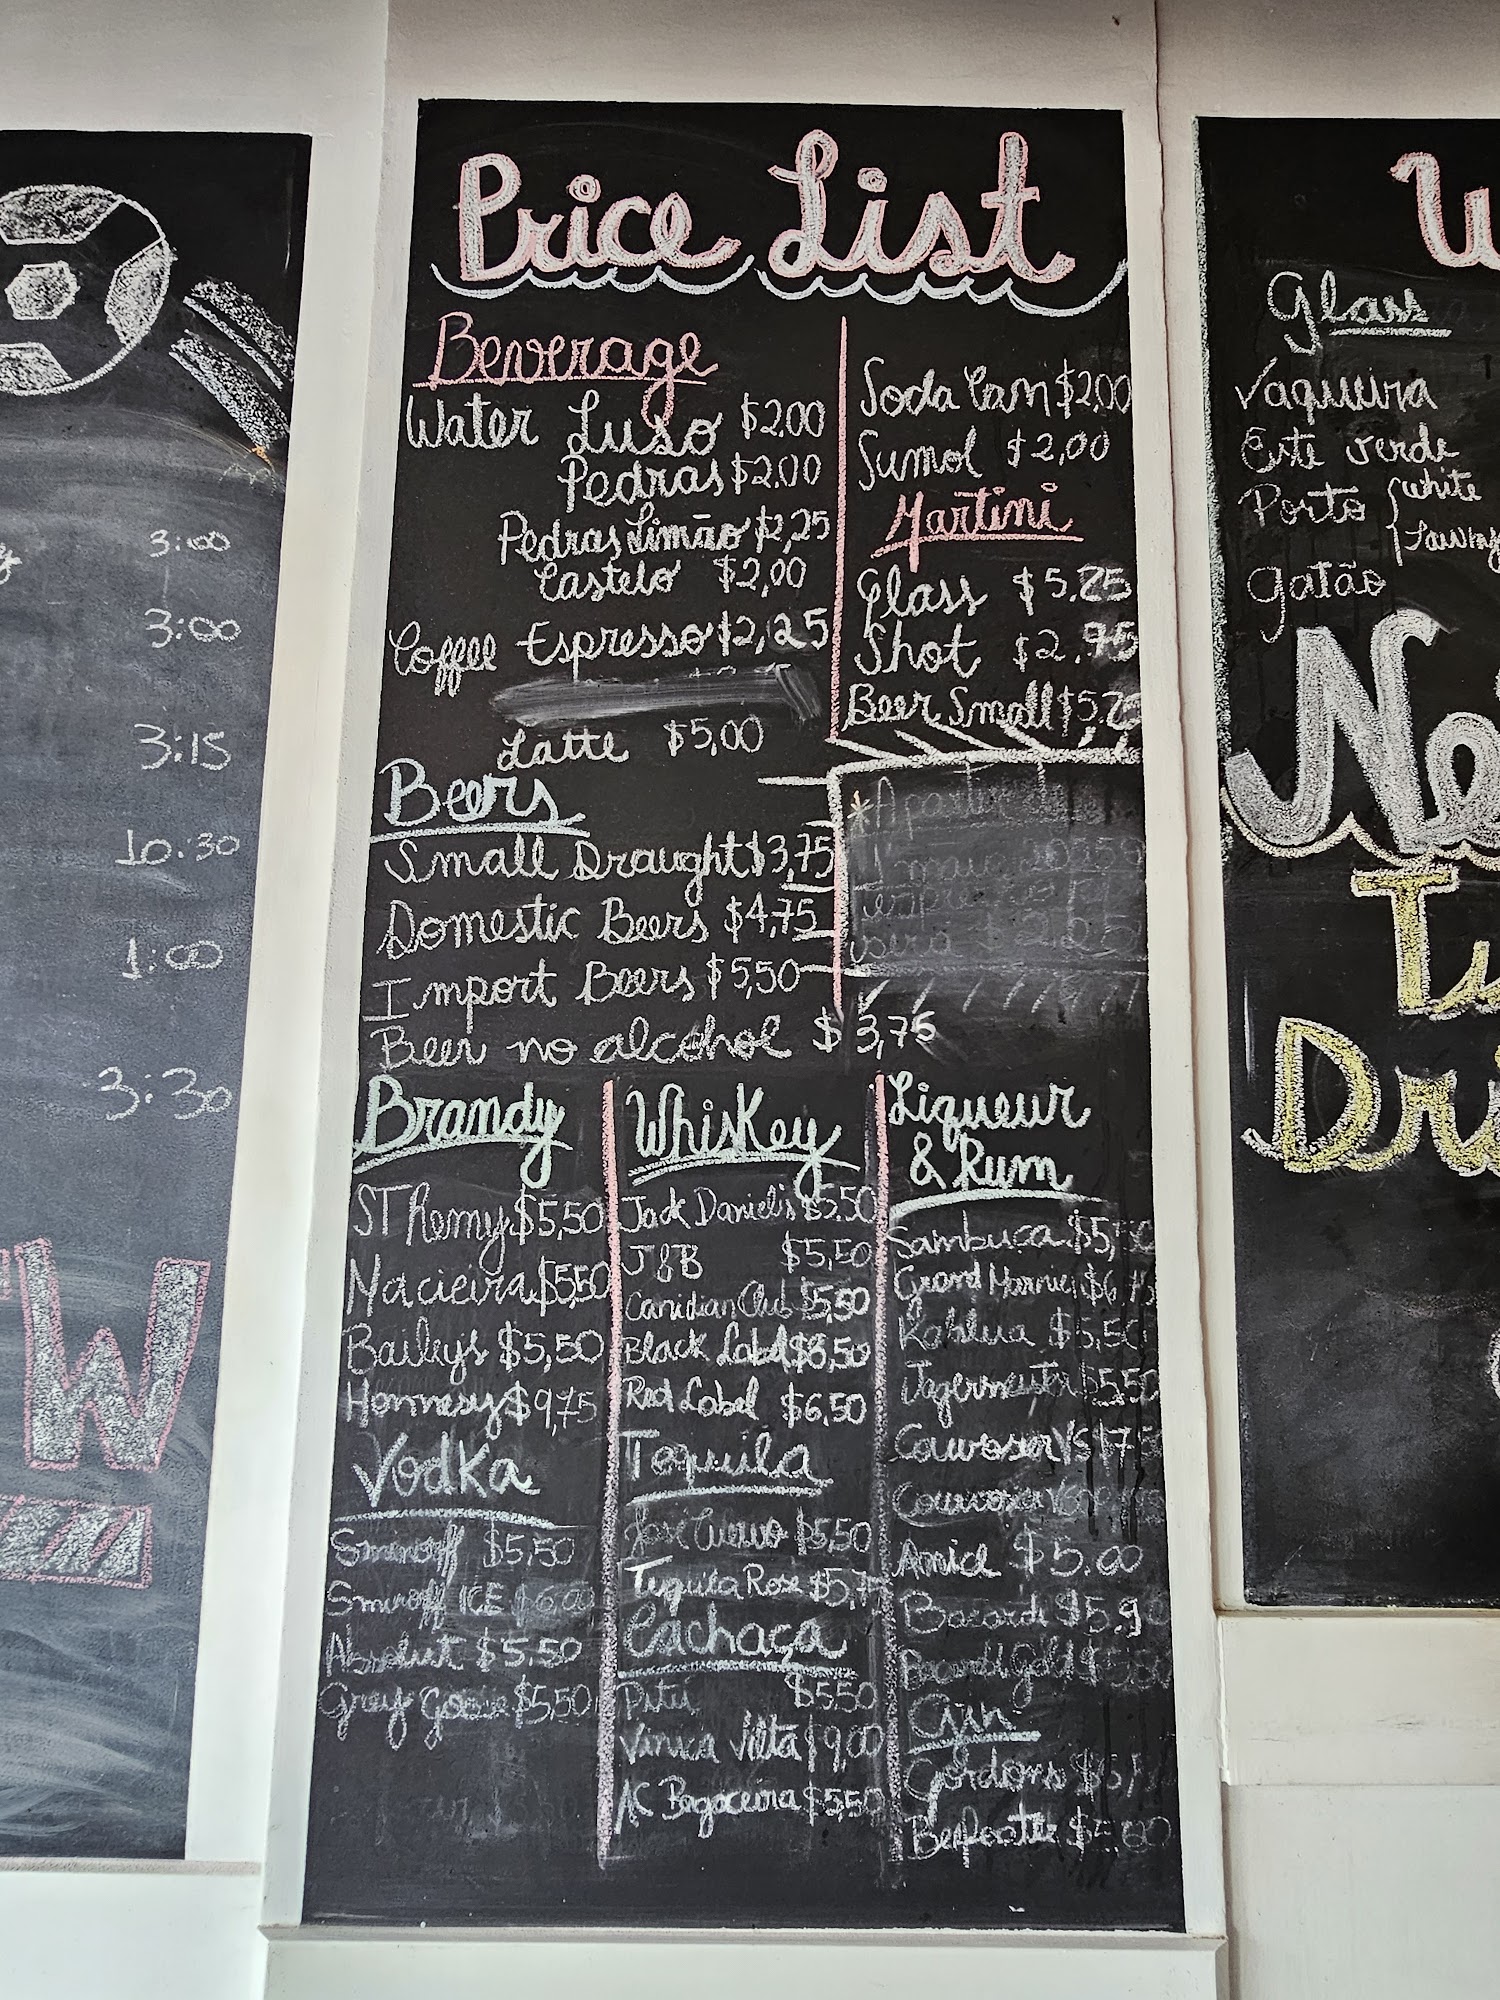 3:00
3:00
3:15
10:30
1:00
3:30
W
Price List
Beverage
Water Luso $2.00
Pedras $2.00
Pedras Limão $2,25
Castelo $2,00
Coffee Espresso $2,25
Latte $5,00
Soda Can $2,00
Sumol $2,00
Martini
Glass $5.75
Shot $2.95
Beer Small $5.25
Beers
Small Draught $3,75
Domestic Beers $4,75
Import Beers $5,50
Beer no alcohol $3,75
*A partir de
1 maio 2025
será $2,25
Brandy
ST Remy $5,50
Macieira $5,50
Baileys $5,50
Hennesy $9,75
Vodka
Smirnoff $5,50
Smirnoff ICE $6,00
Absolut $5,50
Grey Goose $5,50
Whiskey
Jack Daniel's $5.50
J&B $5,50
Canidian Club $5,50
Black Label $8,50
Red Label $6,50
Tequila
José Cuervo $5,50
Tequila Rose $5,75
Cachaça
Pitú $5.50
Vinica Velha $9,00
AC Bagaceira $5,50
Liqueur
& Rum
Sambuca $5,50
Grand Marnier $6,75
Kahlua $5,50
Jagermeister $5.50
Amid $5.00
Bacardi $5.9
Bacardi Gold
Gin
Gordons
Beefeater
Glass
Vaqueira
Este verde
Porto { White
Tawny
Gatão